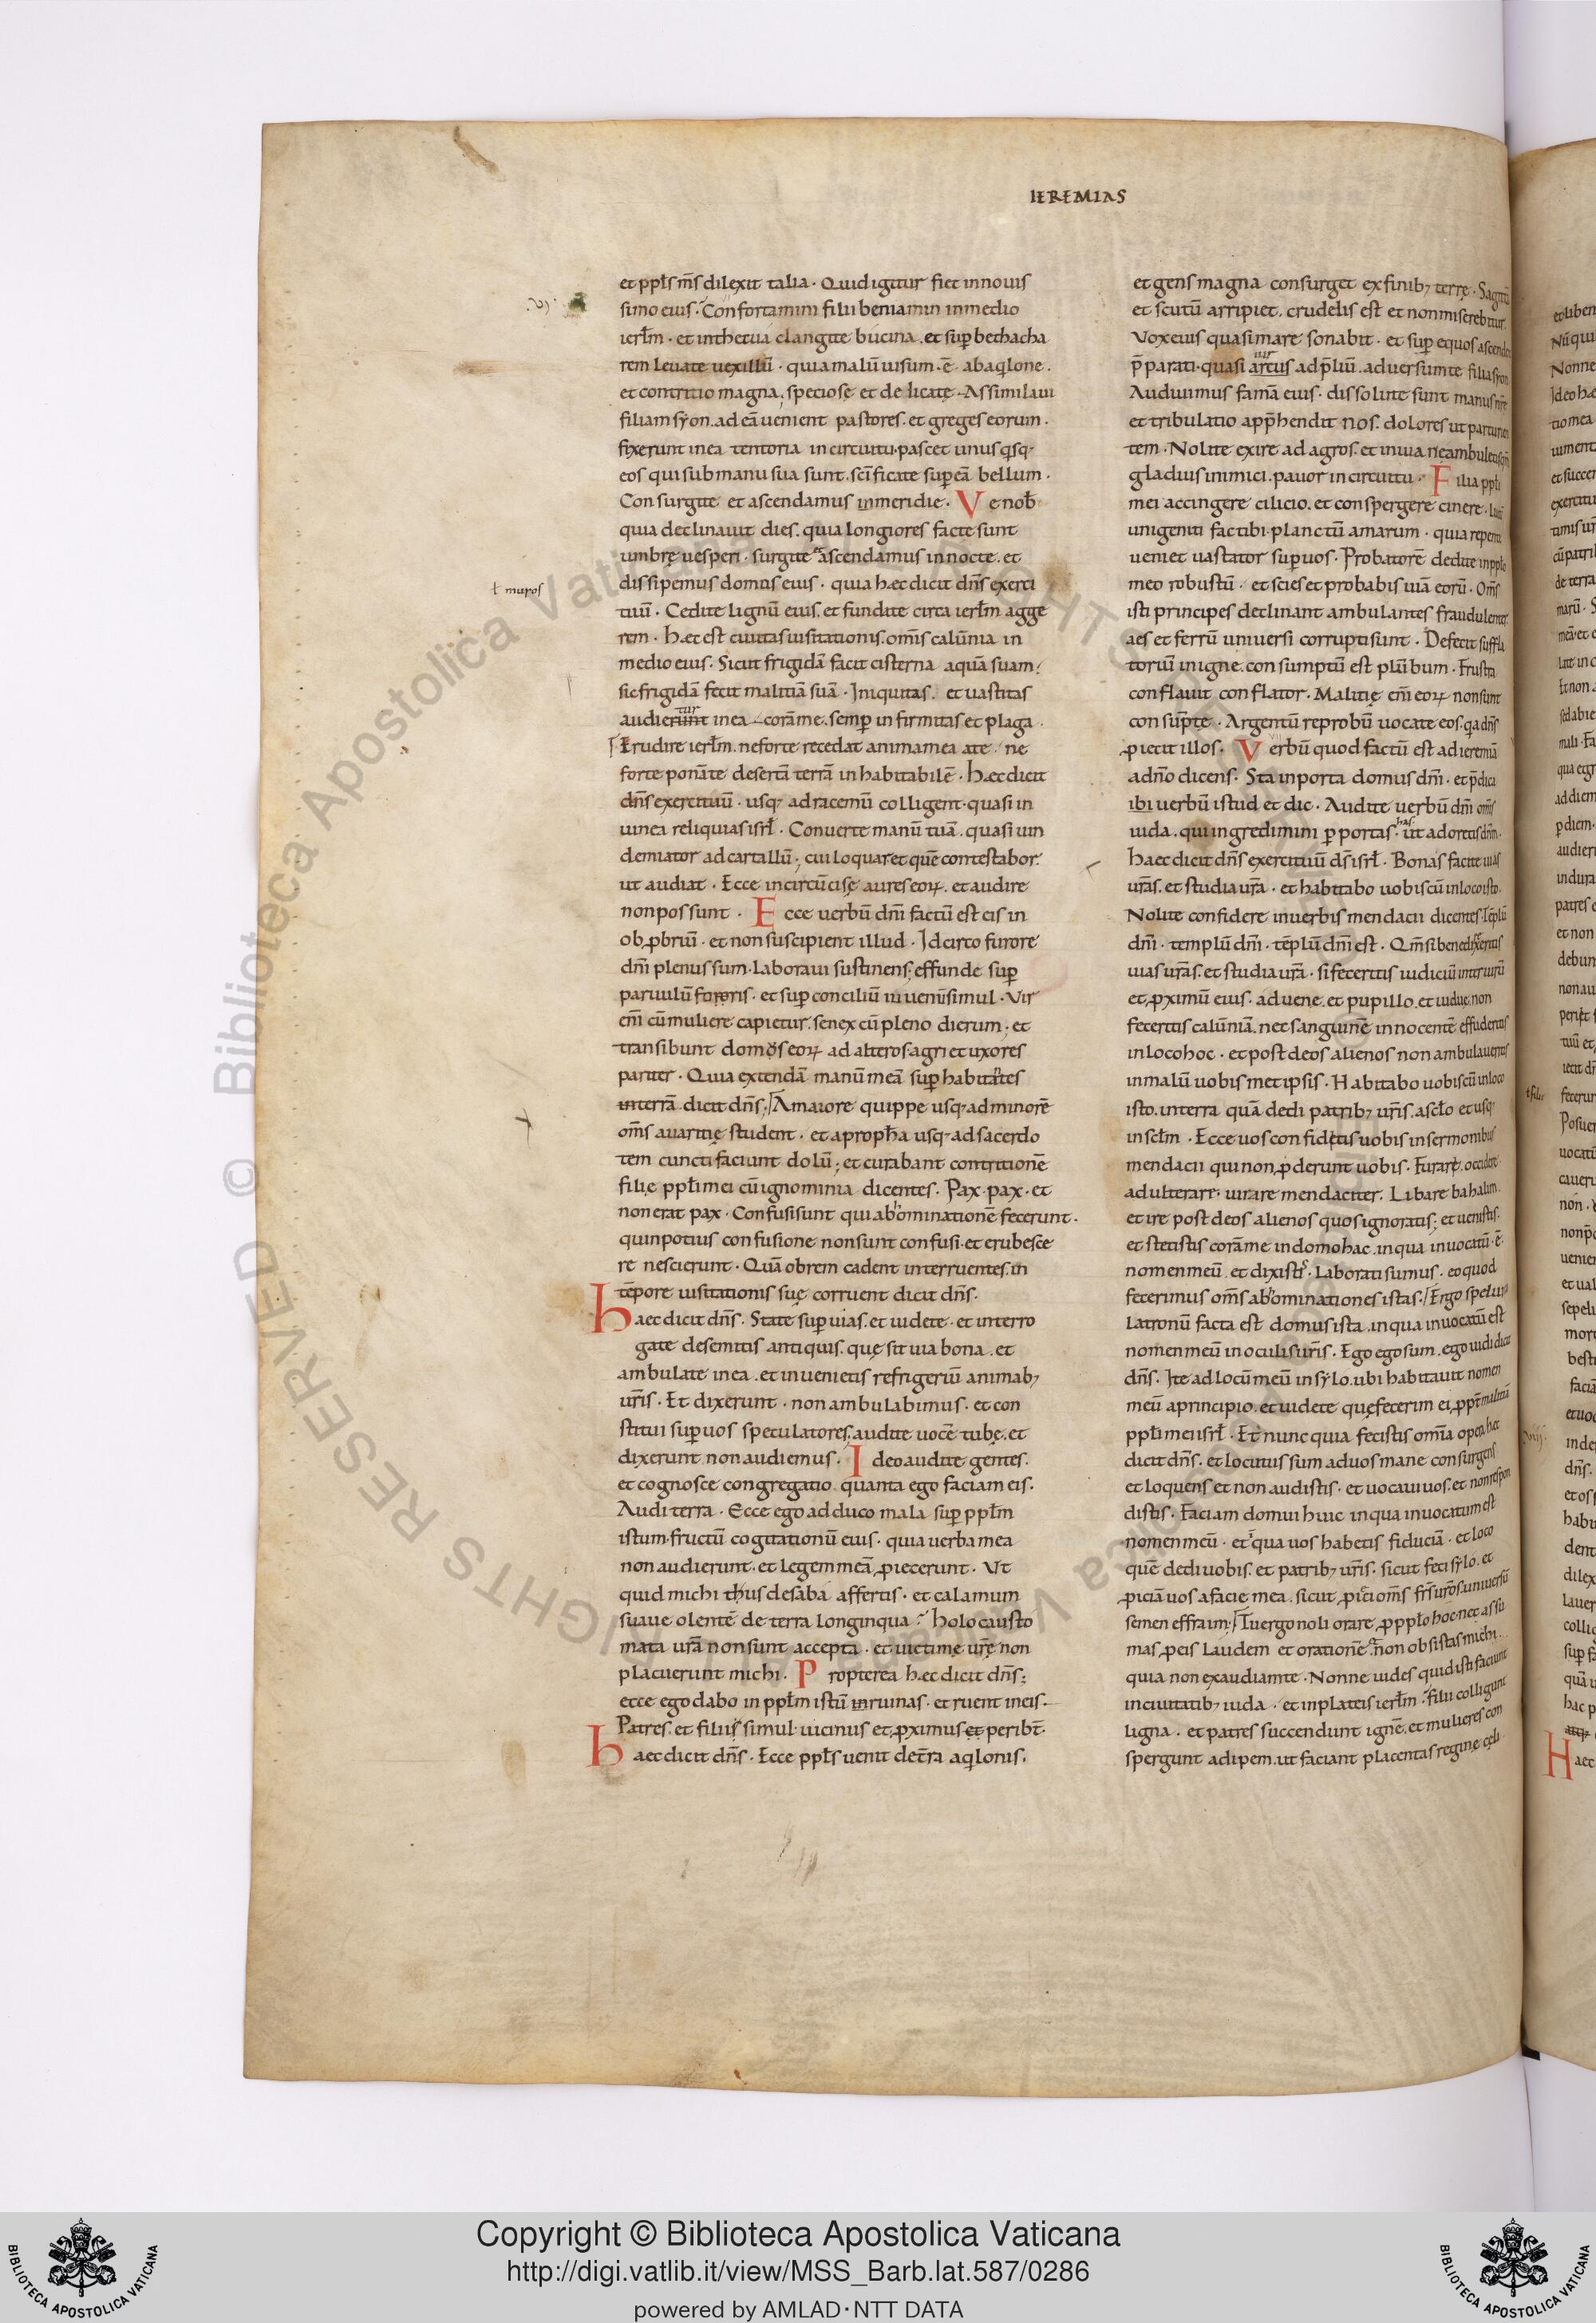 IEREMIAS
et ppl̄s m̄s dilexit talia · Quid igitur fiet in nouis
simo eius · Confortamini filii beniamin in medio
ierl̄m · et in thetua clangite bucina . et sup̄ bethacha
rem leuate uexillū · quia malū uisum · ē · ab aq̇lone .
et contritio magna . speciosę et delicatę · Assimilaui
filiam sẏon . ad eā uenient pastores . et greges eorum .
fixerunt in ea tentoria in circuitu . pascet unus q̇sq̇
eos qui sub manu sua sunt . scīficate sup̄ eā bellum .
Consurgite et ascendamus in meridie . Ve nob̄
quia declinauit dies . quia longiores facte sunt
umbrę uesperi · surgite & ascendamus in nocte . et
dissipemus domus eius · quia hæc dicit dn̄s exerci
ł muros
tuū · Cedite lignū eius . et fundite circa ierl̄m agge
rem · Hæc est ciuitas uisitationis . om̄is calūnia in
medio eius · Sicut frigidā facit cisterna aquā suam :
sic frigidā fecit malitiā suā · Iniquitas . et uastitas
audierunt tur in ea corā me . semp̄ infirmitas et plaga .
Erudire ierl̄m . ne forte recedat anima mea a te . ne
forte ponā te desertā terrā inhabitabilē · Hæc dicit
dn̄s exercituū · usq; ad racemū colligent . quasi in
uinea reliquias isrł · Conuerte manū tuā . quasi uin
demiator ad cartallū ; cui loquar et quē contestabor .
ut audiat · Ecce incircūcisę aures eoꝝ . et audire
non possunt · Ecce uerbū dn̄i factū est eis in
obꝓbriū · et non suscipient illud · Idcirco furore
dn̄i plenus sum . Laboraui sustinens . effunde sup̄
paruulū fororis . et sup̄ conciliū iuuenū simul · Vir
eni̅ cū muliere capietur . senex cū pleno dierum ; et
transibunt domos eoꝝ ad alteros . agri et uxores
pariter · Quia extendā manū meā sup̄ habitātes
in terrā dicit dn̄s ; A maiore quippe usq; ad minorē
om̄s auaritię student . et a proph̄a usq; ad sacerdo
tem cuncti faciunt dolū ; et curabant contritionē
filię ppl̄i mei cū ignominia dicentes . Pax . pax . et
non erat pax · Confusi sunt qui abhominationē fecerunt .
quin potius confusione non sunt confusi . et erubesce
re nescierunt · Quā obrem cadent inter ruentes . in
tēpore uisitationis suę corruent dicit dn̄s .
Haec dicit dn̄s · State sup̄ uias . et uidete . et interro
gate de semitis antiquis . quę sit uia bona . et
ambulate in ea . et inuenietis refrigeriū animab;
ur̄is · Et dixerunt · non ambulabimus · et con
stitui sup̄ uos speculatores . audite uocē tubę . et
dixerunt non audiemus . Ideo audite gentes .
et cognosce congregatio quanta ego faciam eis .
Audi terra · Ecce ego adduco mala sup̄ ppl̄m
istum . fructū cogitationū eius · quia uerba mea
non audierunt . et legem meā ꝓiecerunt · Vt
quid michi thus de saba affertis . et calamum
suaue olentē de terra longinqua ? Holocausto
mata ur̄a non sunt accepta . et uictimę ur̄ę non
placuerunt michi . Propterea hæc dicit dn̄s ;
ecce ego dabo in ppl̄m istū in ruinas . et ruent in eis .
Patres . et filiis simul . uicinus et ꝓximus et peribt̄ .
Haec dicit dn̄s . Ecce ppl̄s uenit de tr̄a aq̇lonis .
et gens magna consurget ex finib; terrę · Sagittā
et scutū arripiet . crudelis est et non miserebitur .
Vox eius quasi mare sonabit · et sup̄ equos ascendent
p̄parati . quasi artus uir ad p̄liū . aduersum te filia sẏon
Audiuimus famā eius . dissolute sunt manus nr̄e
et tribulatio app̄hendit nos . dolores ut parturien
tem · Nolite exire ad agros . et in uia ne ambuletis . qm̄
gladius inimici . pauor in circuitu · Filia ppl̄i
mei accingere cilicio . et conspergere cinere . Luctū
unigeniti fac tibi . planctū amarum . quia repente
ueniet uastator sup̄ uos · Probatorē dedi te in pplo
meo robustū . et scies et probabis uiā eorū · Om̄s
isti principes declinant ambulantes fraudulenter
aes et ferrū uniuersi corrupti sunt · Defecit suffla
toriū in igne . consumptū est plūbum . Frustra
conflauit conflator . Malitię eni̅ eoꝝ non sunt
consūpte . Argentū reprobū uocate eos . q̄a dn̄s
ꝓiecit illos . Verbū quod factū est ad ieremiā
a dn̄o dicens . Sta in porta domus dn̄i . et p̄dica
ibi uerbū istud et dic . Audite uerbū dn̄i om̄is
iuda . qui ingredimini p̄ portas has . ut adoretis dn̄m .
Haec dicit dn̄s exercituū ds̄ isrł . Bonas facite uias
ur̄as . et studia ur̄a . et habitabo uobiscū in loco isto .
Nolite confidere in uerbis mendacii dicentes . Tēplū
dn̄i . templū dn̄i . tēplū dn̄i est . Qm̄ si benedixeritis
uias ur̄as . et studia ur̄a . si feceritis iudiciū inter uirū
et ꝓximum eius . aduene . et pupillo . et uidue . non
feceritis calūniā . nec sanguinē innocentē effuderitis
in loco hoc . et post deos alienos non ambulaueritis
in malū uobismet ipsis . Habitabo uobiscū in loco
isto . in terra quā dedi patrib; ur̄is . a scłō et usq;
in scłm . Ecce uos confidetis uobis in sermonibus
mendacii qui non ꝓderunt uobis . Furare . occidere
adulterare . iurare mendaciter . Libare bahalim .
et ire post deos alienos quos ignoratis ; et uenistis .
et stetistis corā me in domo hac . in qua inuocatū . ē .
nomen meū . et dixistis . Laborati sumus . eo quod
fecerimus om̄s abhominationes istas . Ergo spelun
Latronū facta est domus ista . in qua inuocatū est
nomen meū in oculis ur̄is . Ego ego sum . ego uidi dicit
dn̄s . Ite ad locū meū in sẏlo . ubi habitauit nomen
meū a principio . et uidete quę fecerim ei ꝓpt̄ malitiā
ppl̄i mei isrł . Et nunc quia fecistis om̄ia opera hec
dicit dn̄s . et locutus sum ad uos mane consurgens
et loquens et non audistis . et uocaui uos . et non respon
distis . Faciam domui huic in qua inuocatum est
nomen meū . et in qua uos habetis fiduciā . et loco
quē dedi uobis . et patrib; ur̄is . sicut feci sẏlo . et
ꝓiciā uos a facie mea . sicut ꝓieci om̄s fr̄s ur̄os . uniuersū
semen effraim . Tu ergo noli orare ꝓ pplo hoc . nec assu
mas ꝓ eis Laudem et orationē & non obsistas michi .
quia non exaudiam te . Nonne uides quid isti faciunt
in ciuitatib; iuda . et in plateis ierl̄m . Filii colligunt
ligna . et patres succendunt ignē . et mulieres con
spergunt adipem . ut faciant placentas reginę cęli
Copyright © Biblioteca Apostolica Vaticana
http://digi.vatlib.it/view/MSS_Barb.lat.587/0286
powered by AMLAD·NTT DATA
BIBLIOTECA APOSTOLICA VATICANA
BIBLIOTECA APOSTOLICA VATICANA